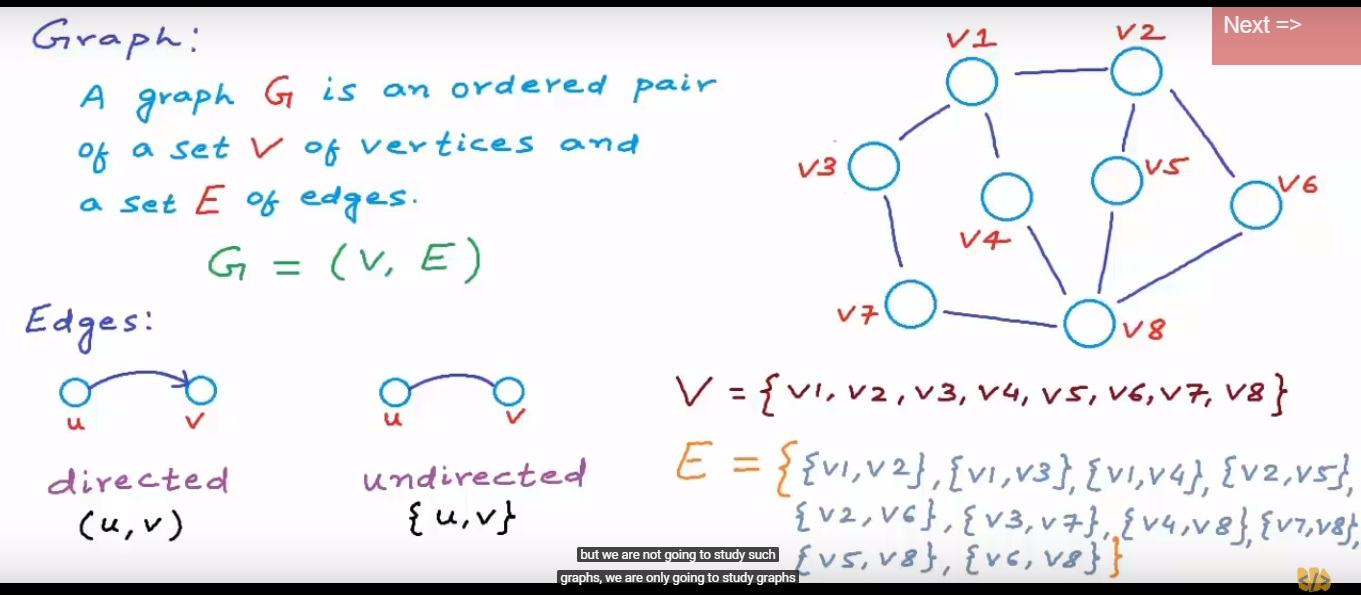 Graph:
A graph G is an ordered pair
of a set V of vertices and
a set E of edges.
G = (V, E)
Edges:
u
v
directed
(u, v)
u
v
undirected
{u, v}
Next =>
v1
v2
v3
v4
v5
v6
v7
v8
V = {v1, v2, v3, v4, v5, v6, v7, v8}
E = {{v1, v2}, {v1, v3}, {v1, v4}, {v2, v5},
{v2, v6}, {v3, v7}, {v4, v8}, {v7, v8},
{v5, v8}, {v6, v8}}
but we are not going to study such
graphs, we are only going to study graphs
</>